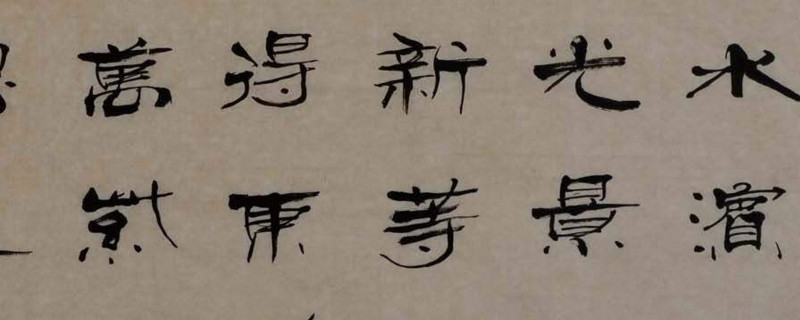 水濱
光景
新等
得東
萬紫